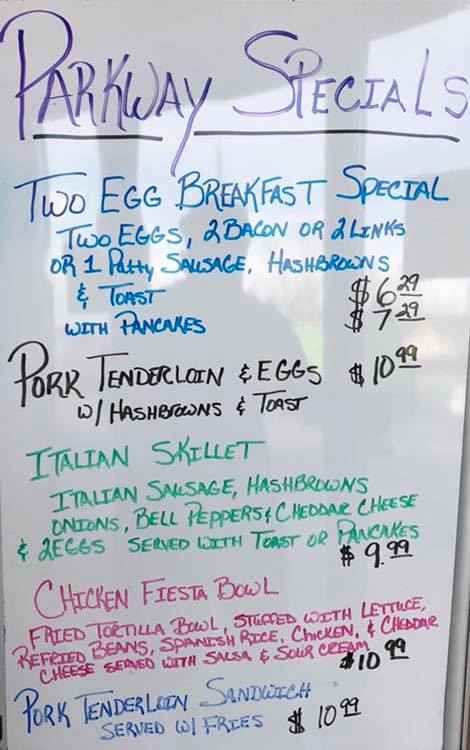 PARKWAY SPECIALS
TWO EGG BREAKFAST SPECIAL
TWO EGGS, 2 BACON OR 2 LINKS
OR 1 Patty SAUSAGE, HASHBROWNS
& TOAST $6.29
WITH PANCAKES $7.29
PORK TENDERLOIN & EGGS $10.99
W/ HASHBROWNS & TOAST
ITALIAN SKILLET
ITALIAN SAUSAGE, HASHBROWNS
ONIONS, BELL PEPPERS & CHEDDAR CHEESE
& 2 EGGS SERVED WITH TOAST OR PANCAKES
$9.99
CHICKEN FIESTA BOWL
FRIED TORTILLA BOWL, STUFFED WITH LETTUCE,
REFRIED BEANS, SPANISH RICE, CHICKEN, & CHEDDAR
CHEESE SERVED WITH SALSA & SOUR CREAM $10.99
PORK TENDERLOIN SANDWICH
SERVED W/ FRIES $10.99